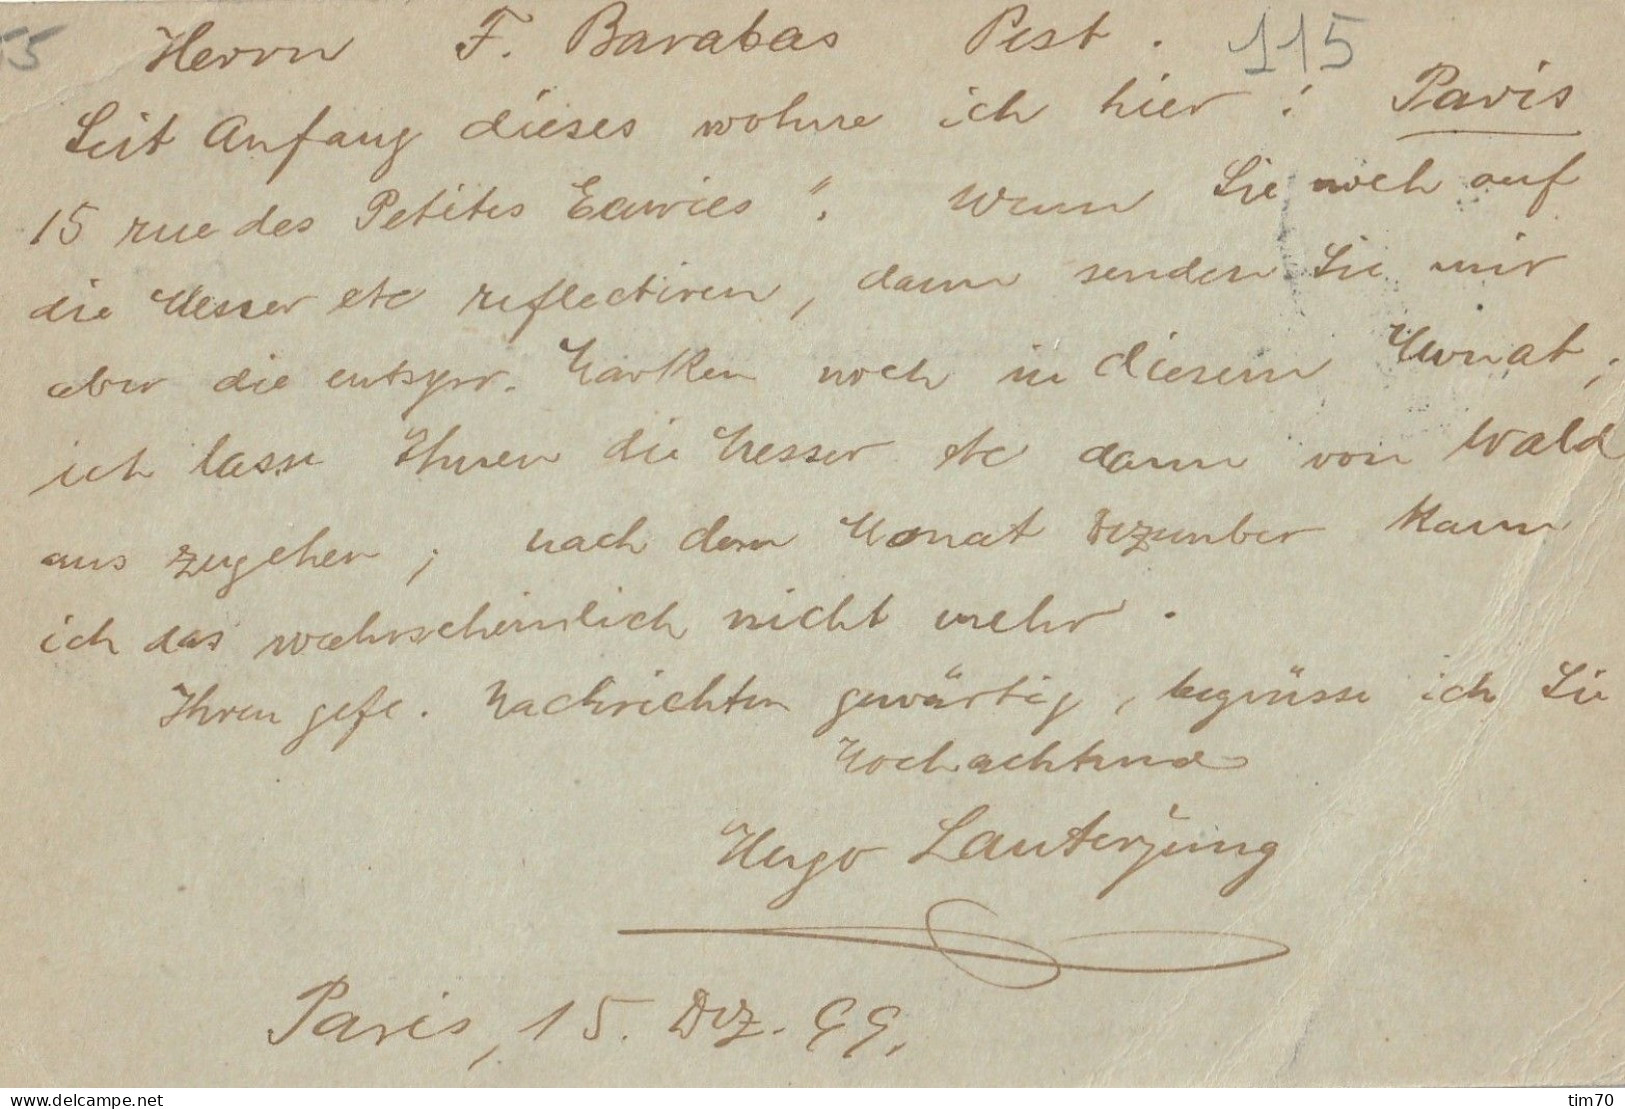 55
Herrn F. Barabas Pest. 115
Seit Anfang dieses wohne ich hier: Paris
15 rue des Petites Ecuries". Wenn Sie noch auf
die Messer etc reflectiren, dann senden Sie mir
aber die entspr. Marken noch in diesem Monat;
ich lasse Ihnen die Messer etc dann von Wald
aus zugehen; nach dem Monat Dezember kann
ich das wahrscheinlich nicht mehr.
Ihren gefl. Nachrichten gewärtig, begrüsse ich Sie
Hochachtend
Hugo Lauterjung
Paris, 15. Dez. 99.
www.delcampe.net tim70